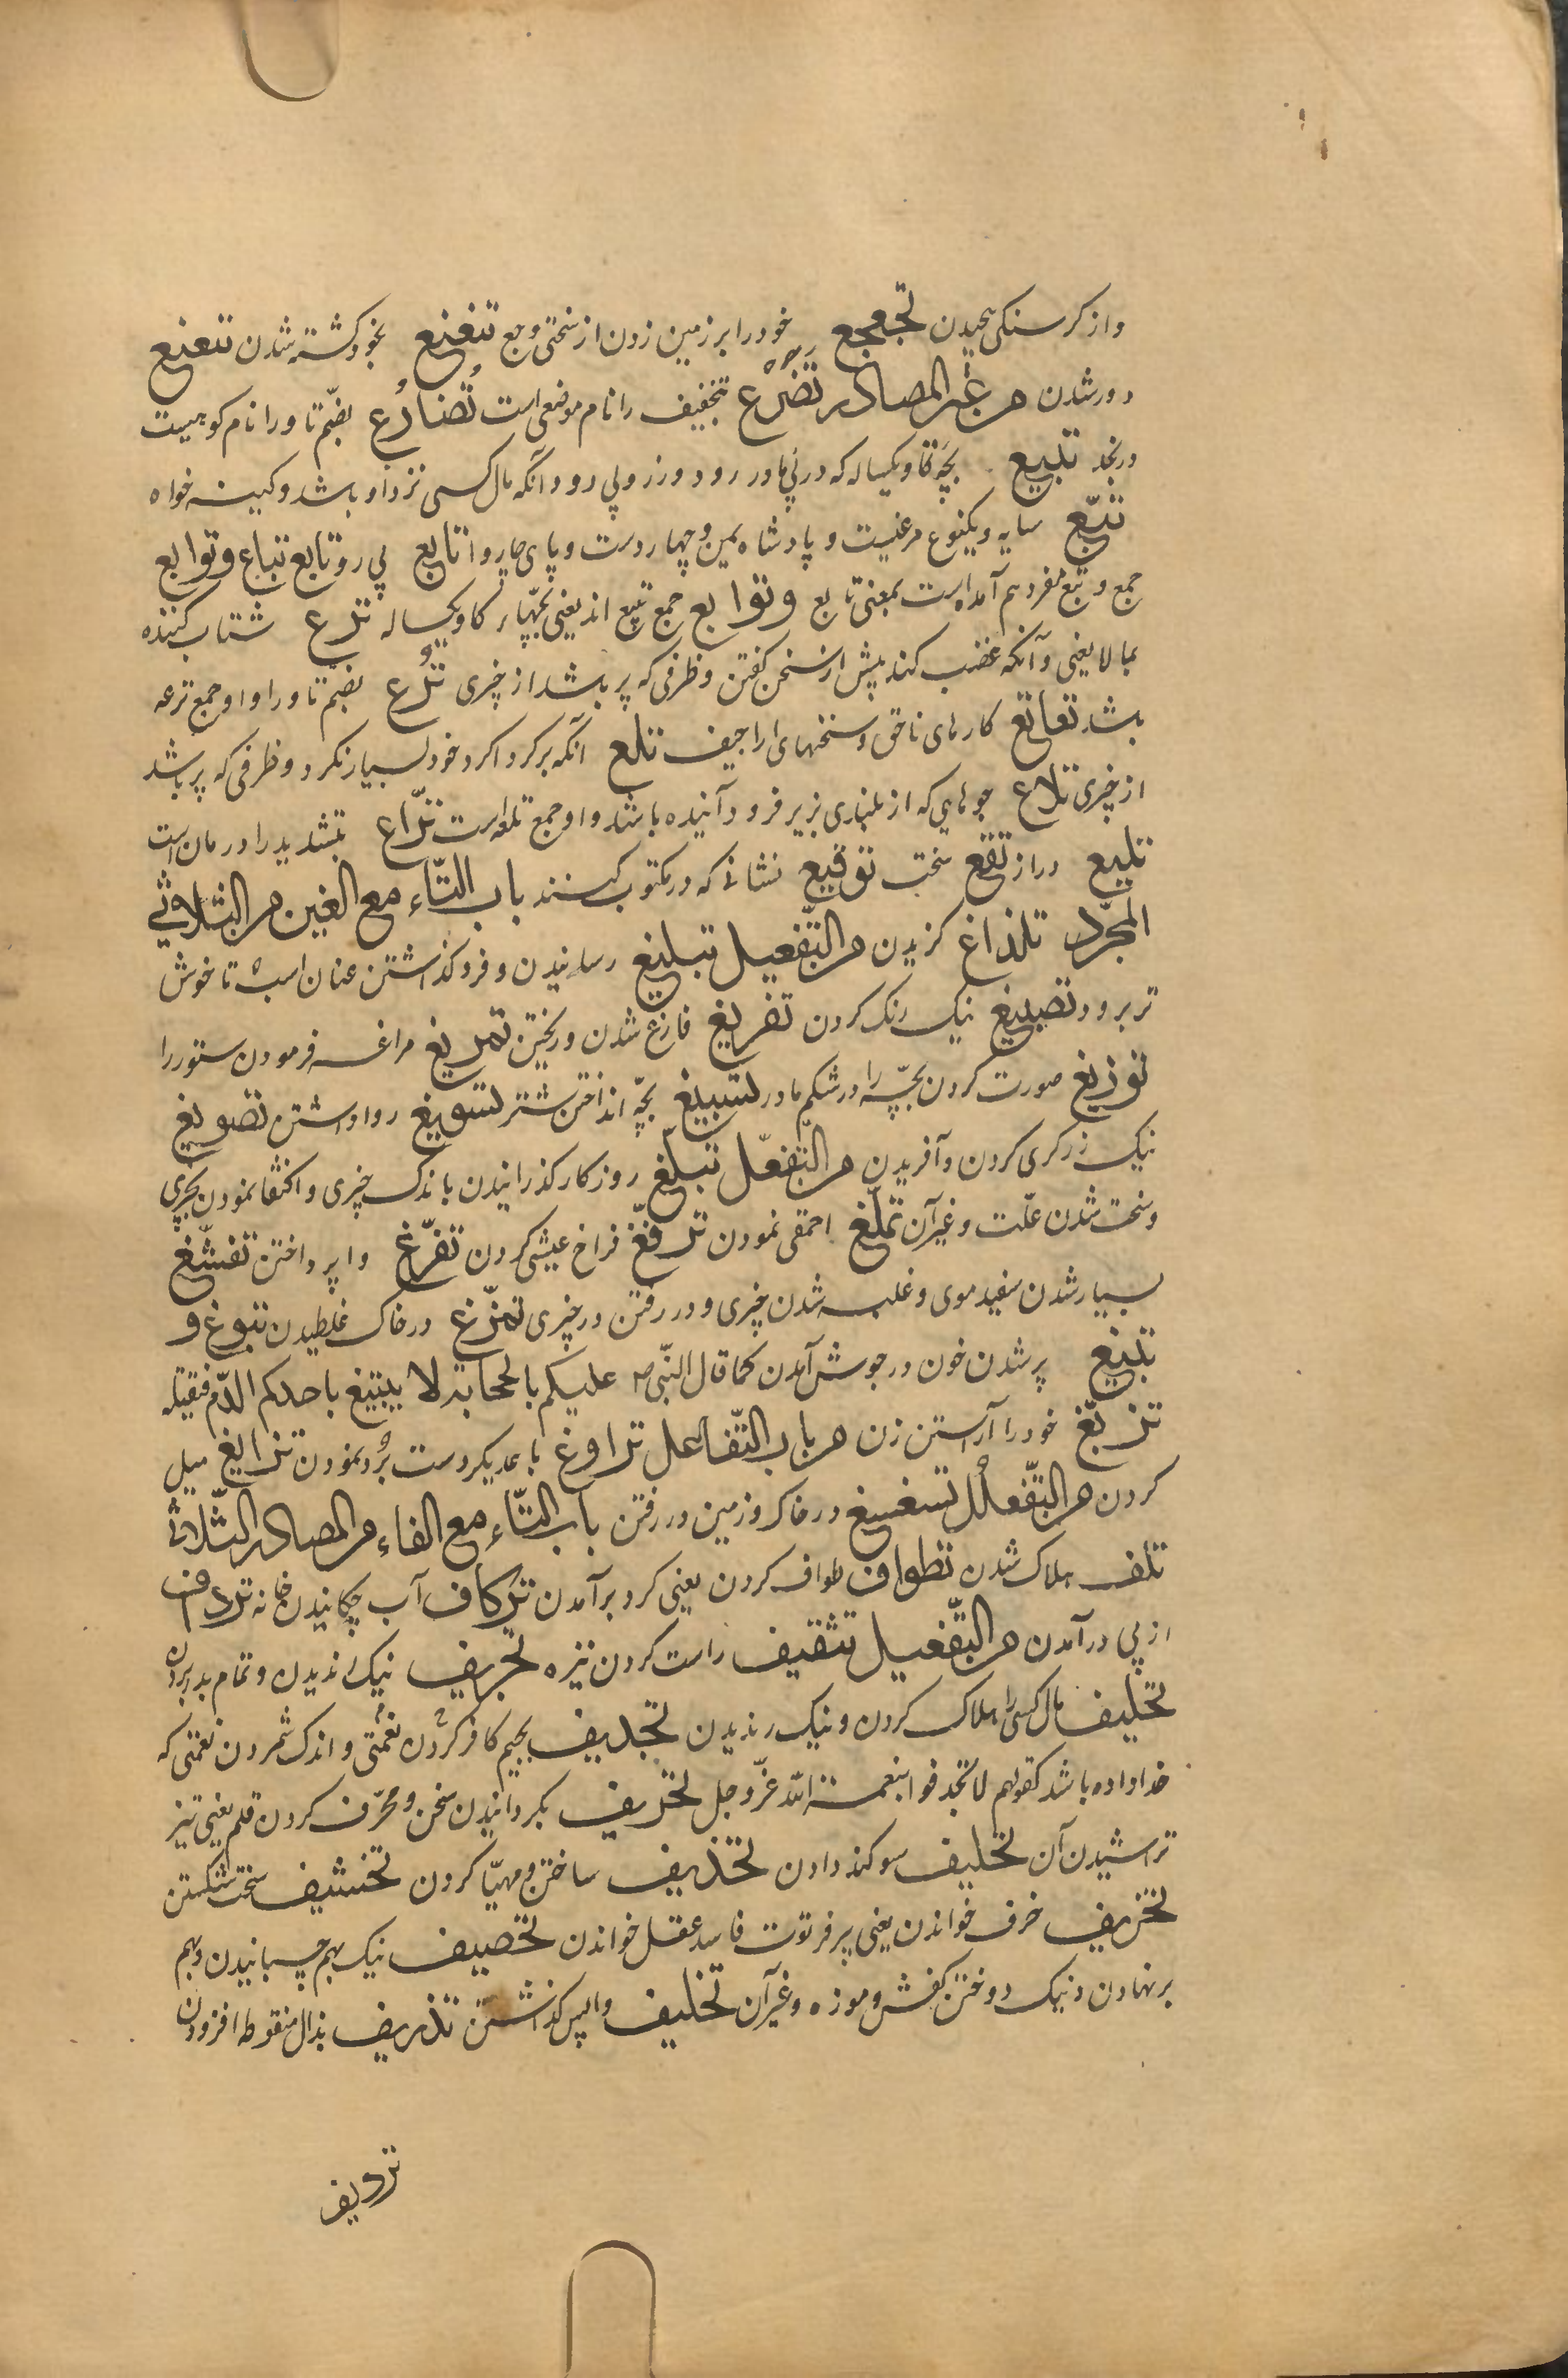 و از کرسنکی پیچیدن تجعجع خود را بر زمین زدن از سختی وجع تنغنع بخود کشته شدن تنعنع
دور شدن من غیر المصادر تضرع بتخفیف را نام موضعی است تضارع بضم تا و را نام کوهیست
در نجد تبیع بچه کاو یکساله که در پی مادر رود و زر و پی رو و آنکه مال کسی نزد او باشد و کینه خواه
تبّع سایه و یکنوع مرغیست و پادشاه یمن و چهار دست و پای تابع پی رو تابع تباع و توابع
جمع و تبع مفرد هم آمده است بمعنی تابع و توابع جمع تبیع اند یعنی بچهای کاو یکساله ترع شتاب کننده
بما لا یعنی و آنکه غضب کند پیش از سخن کفتن و ظرفی که پر باشد از چیزی ترع بضم تا و را و او جمع ترعه
باشد تعاتع کارهای ناحق و سخنهای اراجیف تلع آنکه بر کرداکرد خود بسیار نکرد و ظرفی که پر باشد
از چیزی تلاع جوهایی که از بلندی بزیر فرود آینده باشد و او جمع تلعه است ترّاع بتشدید را دربان است
تلیع دراز تقع سخت توقیع نشانی که در مکتوب کنند باب التّاء مع الغین من الثلاثی
المجرّد تلذاغ کزیدن من التّفعیل تبلیغ رسانیدن و فرو کذاشتن عنان اسب تا خوش
تر برود تصبیغ نیک رنک کردن تفریغ فارغ شدن و ریختن تمریغ مراغه فرمودن ستور را
توزیغ صورت کردن بچه را در شکم مادر تسبیغ بچه انداختن شتر تسویغ روا داشتن تصویغ
نیک زرکری کردن و آفریدن من التّفعّل تبلّغ روزکار کذرانیدن باندک چیزی و اکتفا نمودن بچیزی
و سخت شدن علّت و غیر آن تملّغ احمقی نمودن ترفّغ فراخ عیشی کردن تفرّغ وا پرداختن تفشّغ
بسیار شدن سفید موی و غلبه شدن چیزی و در رفتن در چیزی تمرّغ در خاک غلطیدن تبوغ و
تبیغ پر شدن خون در جوش آمدن کما قال النّبی ص علیکم بالحجامة لا یتبیغ باحدکم الدّم فیقتله
تزبّغ خود را آراستن زن من باب التّفاعل تراوغ با همدیکر دست برد نمودن تزایغ میل
کردن من التّفعلل تسغسغ در خاک و زمین در رفتن باب التّاء مع الفاء من المصادر الثّلاثی
تلف هلاک شدن تطواف طواف کردن یعنی کرد بر آمدن ترکاف آب چکانیدن خانه تردف
از پی در آمدن من التّفعیل تثقیف راست کردن نیزه تجریف نیک رندیدن و تمام بدر بردن
تجلیف مال کسی را هلاک کردن و نیک رندیدن تجدیف بجیم کافر کردن نعمتی و اندک شمردن نعمتی که
خدا داده باشد کقولهم لا تجدفوا بنعمة الله عزّ و جل تحریف بکردانیدن سخن و محرّف کردن قلم یعنی تیز
تراشیدن آن تحلیف سوکند دادن تحذیف ساختن و مهیّا کردن تخشیف سخت شکستن
تخریف خرف خواندن یعنی پیر فرتوت فاسد عقل خواندن تخصیف نیک بهم چسبانیدن و بهم
بر نهادن و نیک دوختن کفش و موزه و غیر آن تخلیف واپس کذاشتن تذریف بذال منقوطه افزودن
تردیف